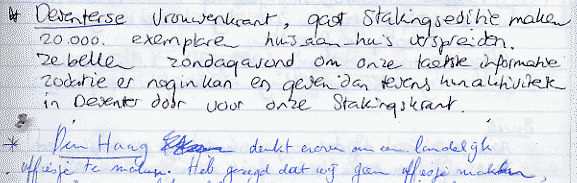 * Deventerse vrouwenkrant, gaat Stakingseditie maken
20.000. exemplaren huis-aan-huis verspreiden.
ze bellen zondagavond om onze laatste informatie
zodatie er nog in kan en geven dan tevens hun aktiviteiten
in Deventer door voor onze Stakingskrant.
* Den Haag denkt erover om een landelijk
affiesje te maken. Heb gezegd dat wij geen affiesje maken,